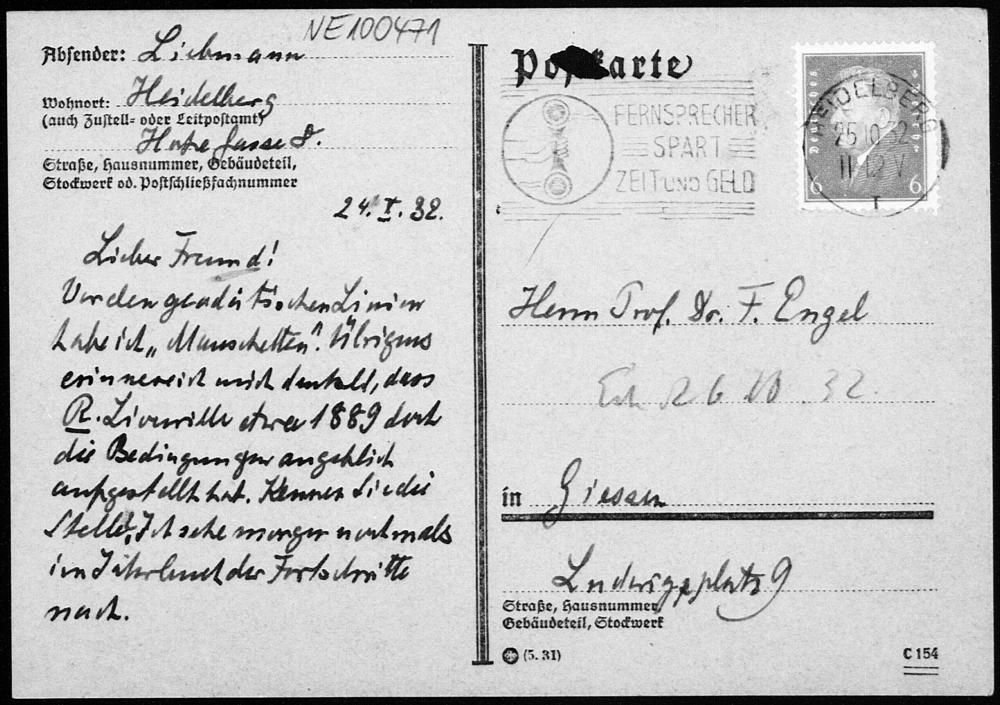 NE100471
Absender: Liebmann
Wohnort: Heidelberg
(auch Zustell- oder Leitpostamt)
Straße, Hausnummer, Gebäudeteil,
Stockwerk od. Postschließfachnummer
24. X. 32.
Lieber Freund!
Vor den geodätischen Linien
habe ich „Manschetten“. Übrigens
erinnere ich mich dunkel, dass
R. Liouville etwa 1889 doch
die Bedingungen angeblich
aufgestellt hat. Kennen Sie die
Stelle? Ich sehe morgen nochmals
im Jahrbuch der Fortschritte
nach.
Postkarte
FERNSPRECHER
SPART
ZEIT UND GELD
HEIDELBERG
25.10.32
11-12 V
DEUTSCHES
6 6
Herrn Prof. Dr. F. Engel
26 10. 32.
in Giessen
Ludwigsplatz 9
Straße, Hausnummer,
Gebäudeteil, Stockwerk
(5. 31)
C 154